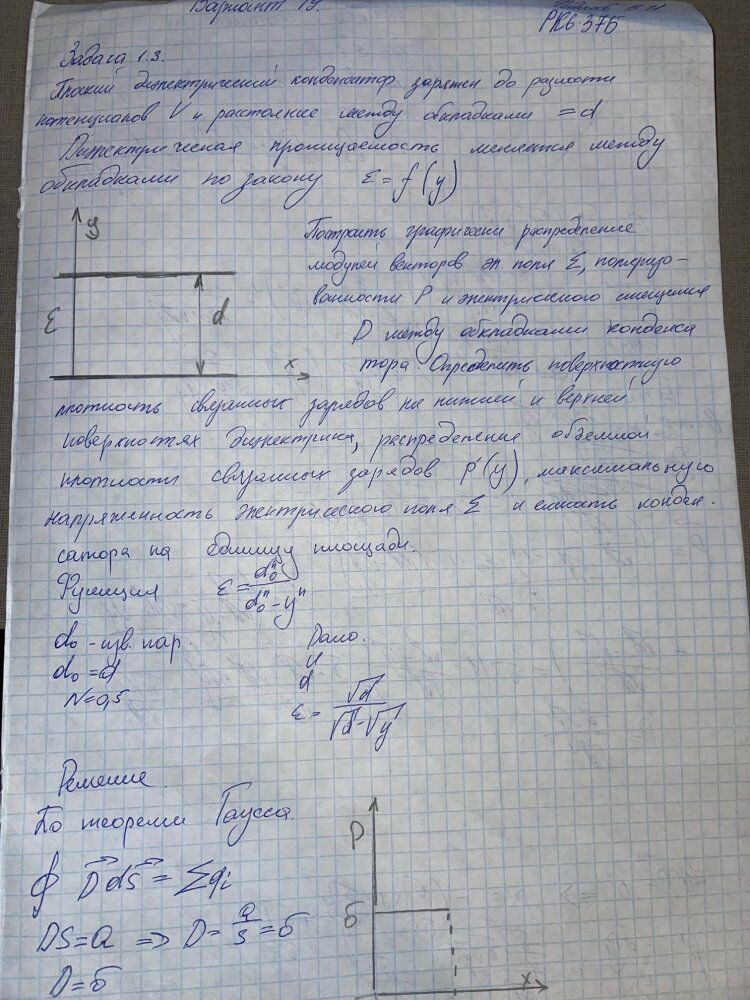 Вариант 19.
РК6-37Б
Задача 1.3.
Плоский диэлектрический конденсатор заряжен до разности
потенциалов V и расстояние между обкладками = d
Диэлектрическая проницаемость меняется между
обкладками по закону ε = f(y)
y
ε
d
x
Построить графически распределение
модулей векторов эл. поля E, поляризо-
ванности P и электрического смещения
D между обкладками конденса
тора. Определить поверхностную
плотность связанных зарядов на нижней и верхней
поверхностях диэлектрика, распределение объемной
плотности связанных зарядов ρ'(y), максимальную
напряженность электрического поля E и емкость конден-
сатора на единицу площади.
Функция ε = d₀ⁿ / (d₀ⁿ - yⁿ)
d₀ - изв. пар.
d₀ = d
N = 0,5
Дано.
U
d
ε = √d / (√d - √y)
Решение.
По теореми Гаусса.
∮ D⃗ dS⃗ = Σqi
DS = Q => D = Q/S = б
D = б
D
б
x